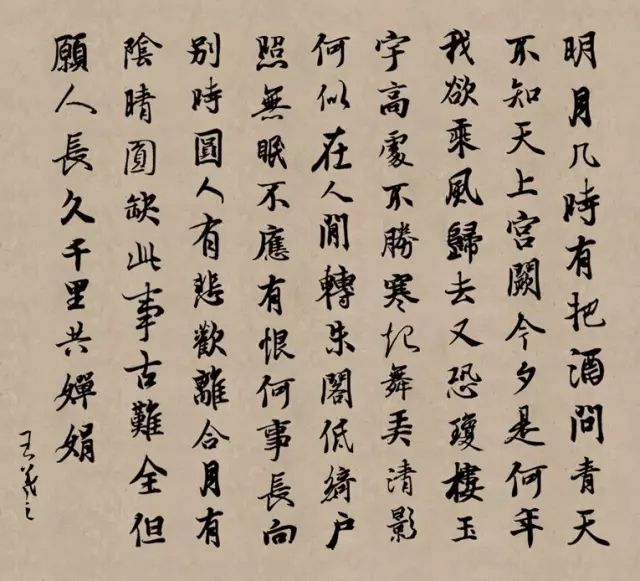 明月几時有把酒問青天
不知天上宫闕今夕是何年
我欲乘風歸去又恐瓊樓玉
宇高處不勝寒起舞弄清影
何似在人間轉朱閣低綺户
照無眠不應有恨何事長向
别時圓人有悲歡離合月有
陰晴圓缺此事古難全但
願人長久千里共嬋娟
王羲之